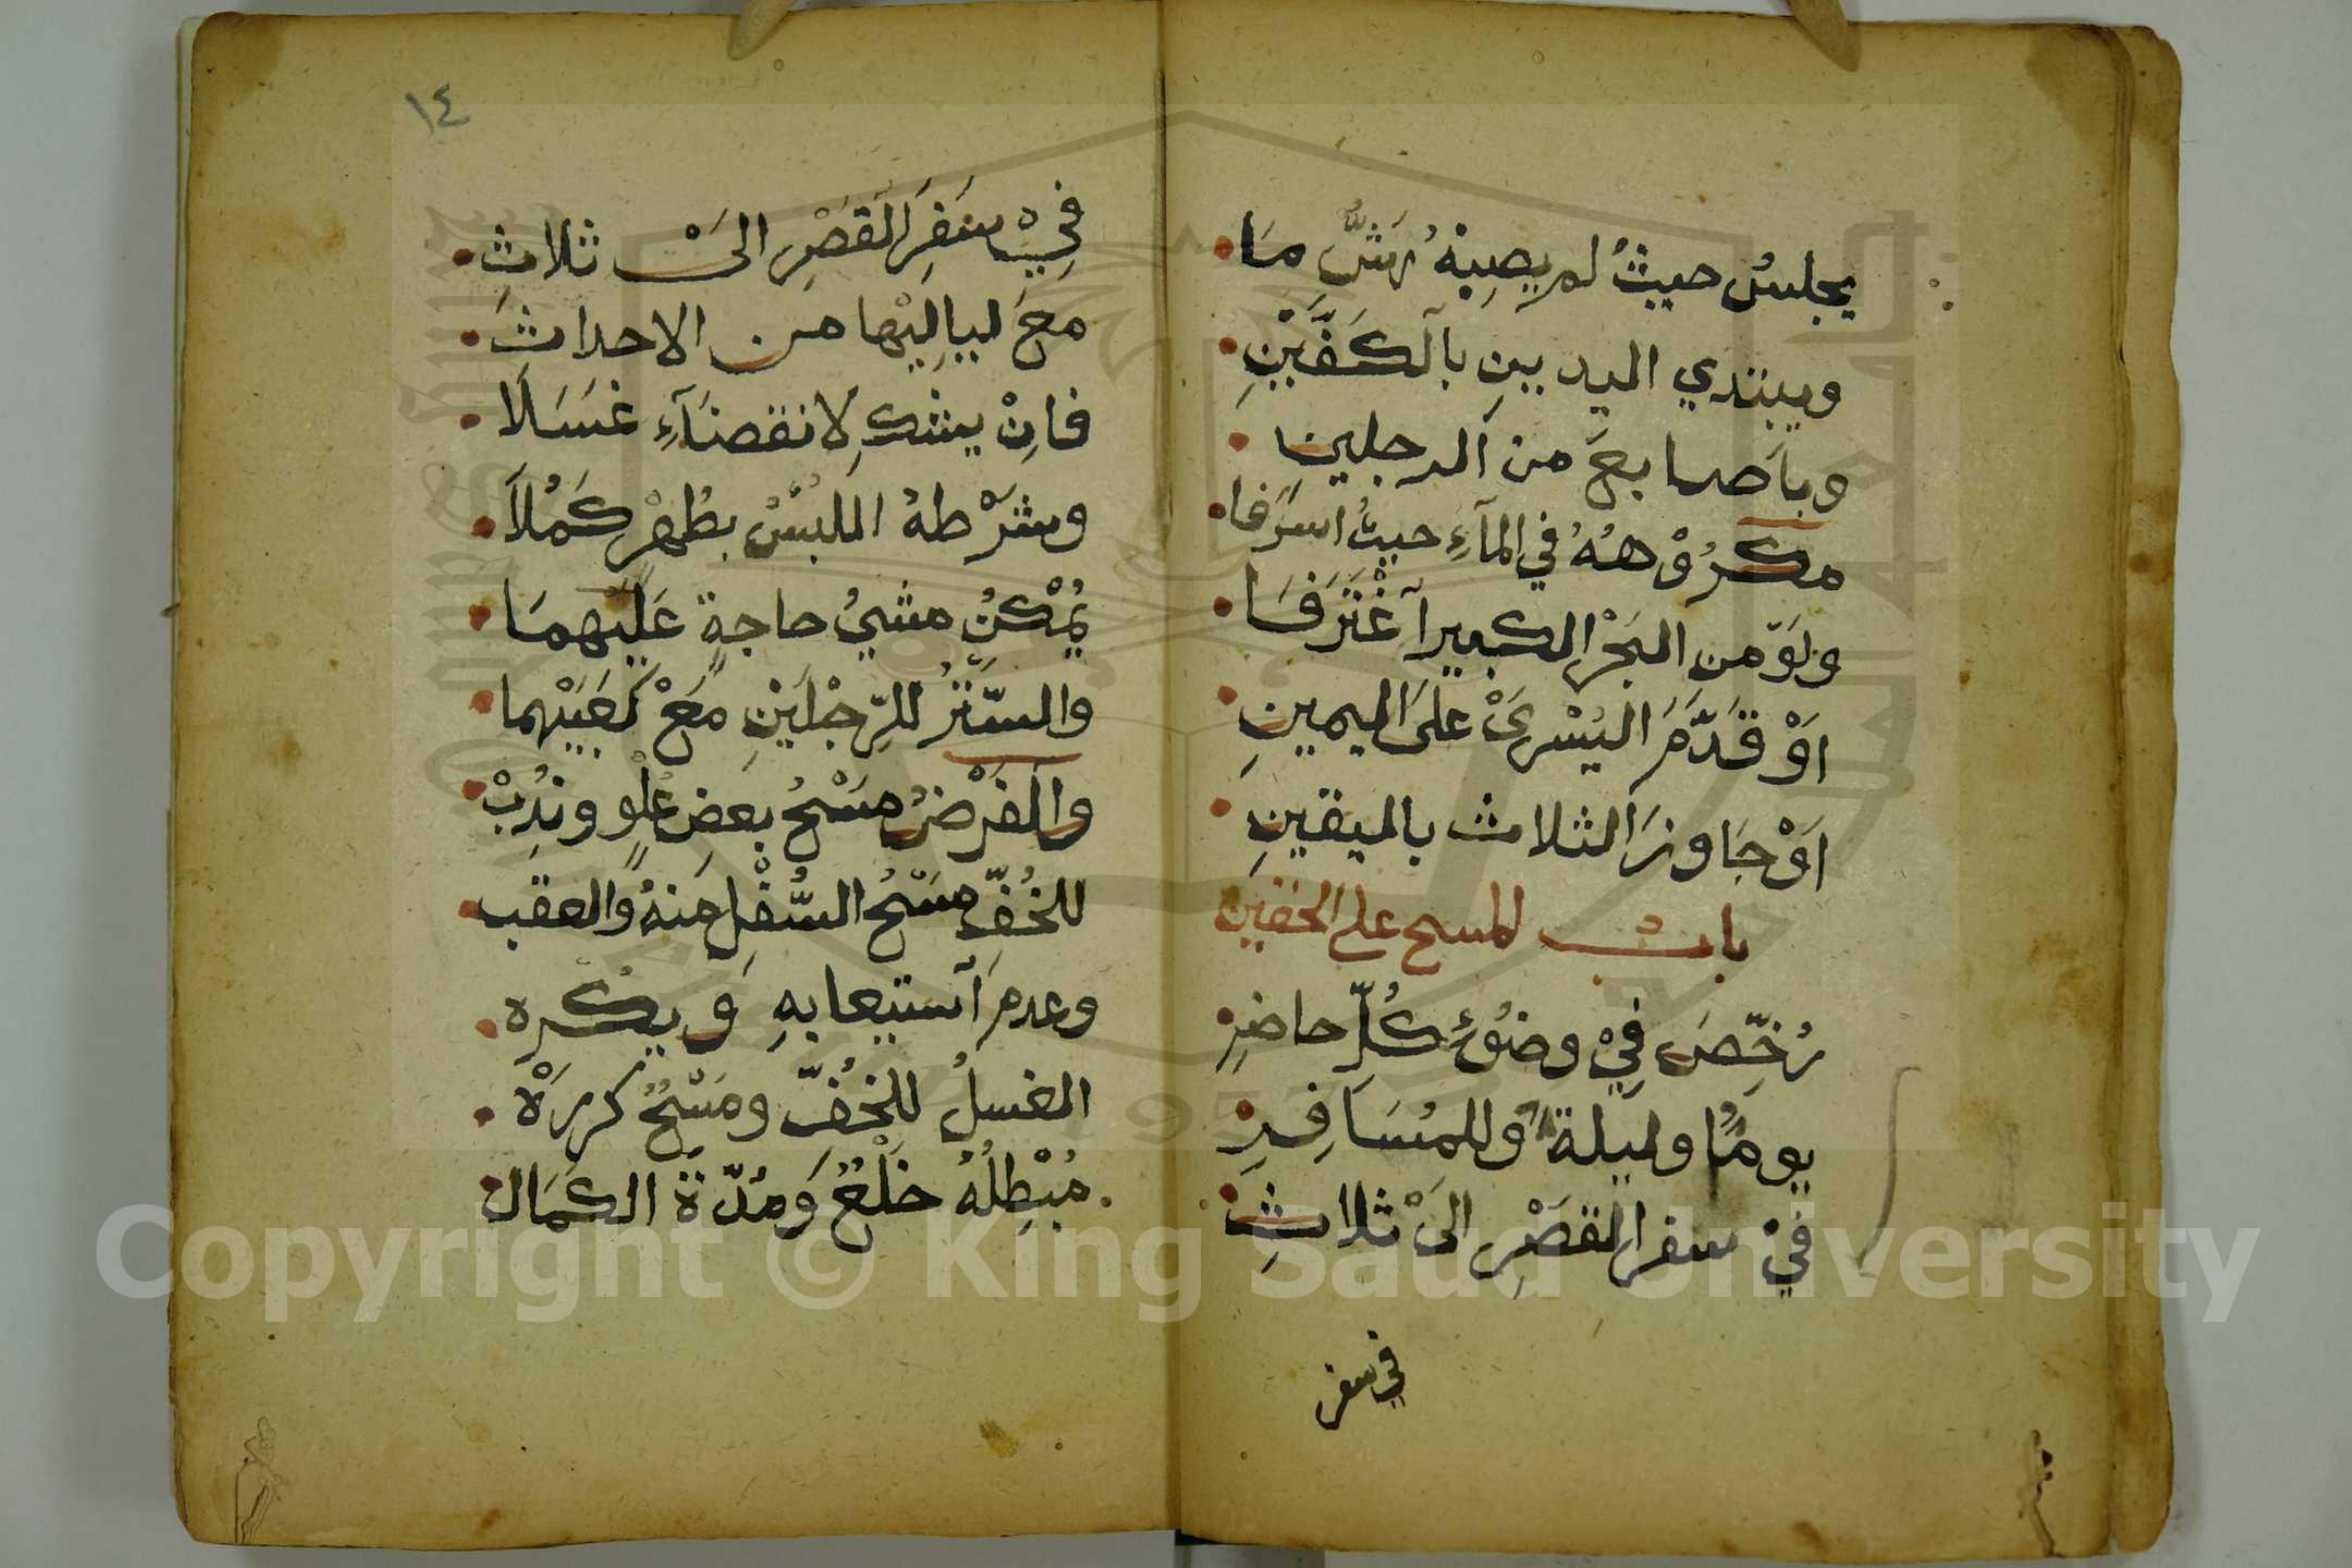 يجلسُ حيثُ لم يصِبْهُ رَشُّ مَا
ويبتدي اليديين بالكَفَّيْنِ
وباَصابعَ من الرجلينِ
مكرُوْهُهُ في المآءِ حيثُ اسرَفا
ولَوْ من البَحْرِ الكبيرِ آغْتَرَفَا
اَوْ قَدَّمَ اليُسْرَىْ علىَ اليمينِ
اَوْ جَاوزَ الثلاث باليقينِ
باب المسح على الخفين
رُخِّصَ فِيْ وضوُءِ كُلِّ حاضِرِ
يومًا وليلةً وللمُسَافِرِ
فيْ سفر القصْرِ الىَْ ثلاثِ
في سفر
١٤
فِيْ سَفَرِ القصْرِ الىَْ ثلاثِ
معَ لياليْها من الاحداثَ
فاِنْ يشُكِ لانقضَآءِ غَسَلَا
وشَرْطهُ اللُبْسُ بطُهْرٍ كَمُلَا
يُمْكنُ مشيُ حاجةٍ عَليهمَا
والسَّتْرُ للرِّجْلَيْنِ مَعْ كَعْبَيْهما
والفَرْضُ مَسْحُ بعضِ عُلْوٍ ونُدِبْ
للخُفِّ مَسْحُ السُّفْلِ مِنهُ والعقب
وعدمَ آستيعابهِ وَيكره
الغسلُ للخُفِّ ومَسْحٌ كررَهْ
مُبْطِلُهُ خَلْعٌ وَمُدّةَ الكمَالِ
Copyright © King Saud University